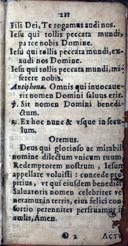 211
Fili Dei, Te rogamus audi nos.
Iesu qui tollis peccata mundi,
parce nobis Domine.
Iesu qui tollis peccata mundi, ex-
audi nos Domine.
Iesu qui tollis peccata mundi, mi-
serere nobis.
Antiphona. Omnis qui invocave-
rit nomen Domini salvus erit.
℣. Sit nomen Domini bened-
ctum.
℞. Ex hoc nunc & usque in secu-
lum.
Oremus.
Deus qui glorioso ac mirabili
nomine dilectum unicum tuum,
Redemptorem nostrum, Iesum
appellare voluisti: concede pro-
pitius, ut qui eiusdem benedicti
Salvatoris nomen celebriter ve-
neramur in terris, eius felici con-
sortio perenniter perfruamur in
cælis, Amen.
2 Act